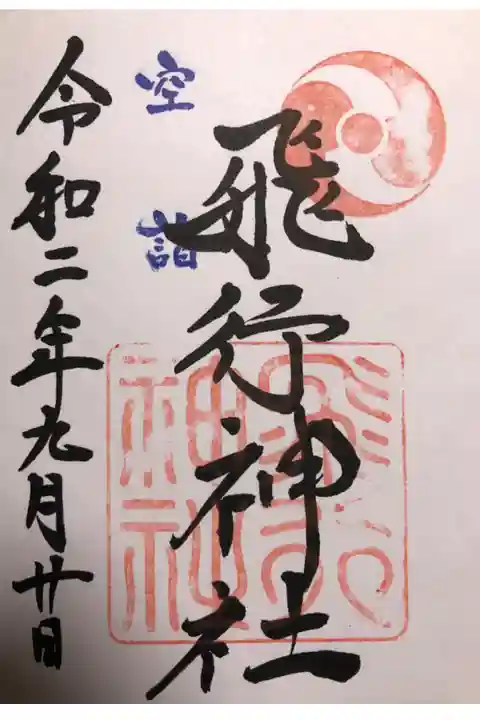 飛行神社
空詣
令和二年九月廿日